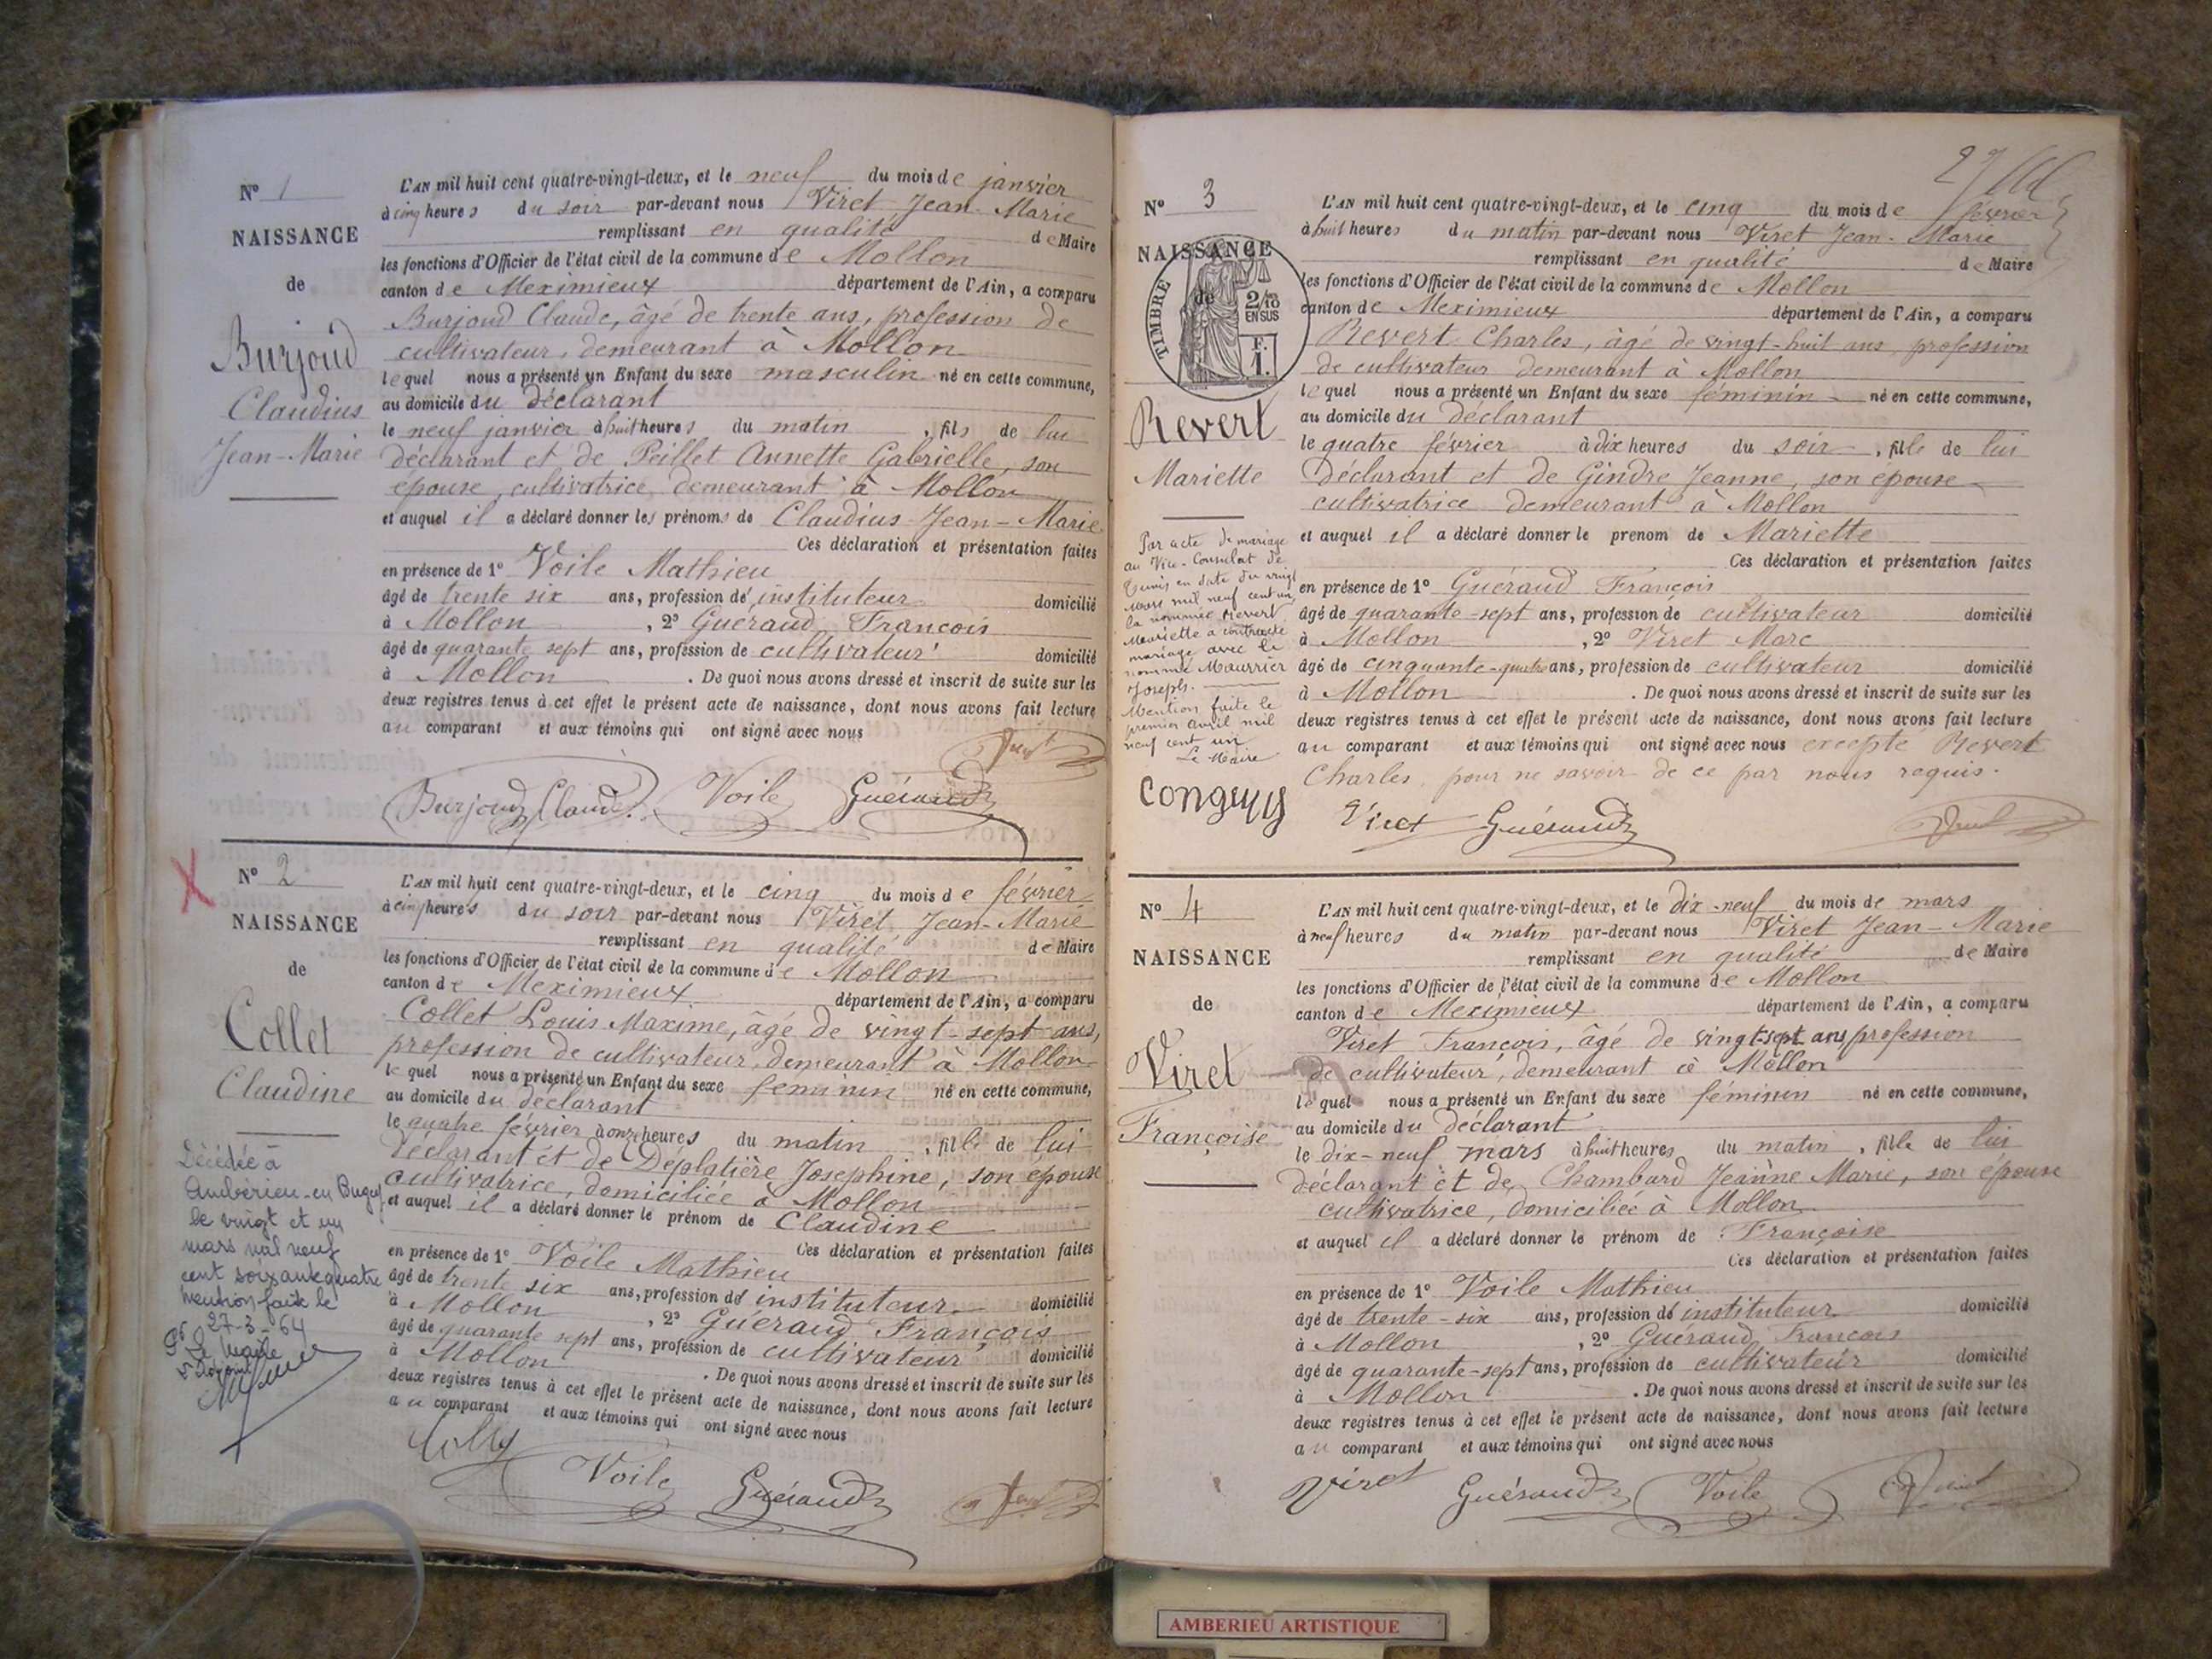 N° 1
NAISSANCE
de
Burjoud
Claudius
Jean-Marie
L'AN mil huit cent quatre-vingt-deux, et le neuf du mois de janvier
à cinq heures du soir par-devant nous Viret Jean-Marie
remplissant en qualité de Maire
les fonctions d'Officier de l'état civil de la commune de Mollon
canton de Meximieux département de l'Ain, a comparu
Burjoud Claude, âgé de trente ans, profession de
cultivateur, demeurant à Mollon
lequel nous a présenté un Enfant du sexe masculin né en cette commune,
au domicile du déclarant
le neuf janvier à huit heures du matin, fils de lui
déclarant et de Peillet Annette Gabrielle, son
épouse, cultivatrice, demeurant à Mollon
et auquel il a déclaré donner les prénoms de Claudius Jean-Marie
Ces déclaration et présentation faites
en présence de 1° Voile Mathieu
âgé de trente six ans, profession de instituteur domicilié
à Mollon, 2° Guéraud François
âgé de quarante sept ans, profession de cultivateur domicilié
à Mollon. De quoi nous avons dressé et inscrit de suite sur les
deux registres tenus à cet effet le présent acte de naissance, dont nous avons fait lecture
au comparant et aux témoins qui ont signé avec nous
Burjoud Claude Voile Guéraud Viret
N° 2
NAISSANCE
de
Collet
Claudine
Décédée à
Ambérieu-en Bugey
le vingt et un
mars mil neuf
cent soixante quatre
Mention faite le
27-3-64
Le Maire
L'AN mil huit cent quatre-vingt-deux, et le cinq du mois de février
à cinq heures du soir par-devant nous Viret Jean-Marie
remplissant en qualité de Maire
les fonctions d'Officier de l'état civil de la commune de Mollon
canton de Meximieux département de l'Ain, a comparu
Collet Louis Maxime, âgé de vingt-sept ans,
profession de cultivateur, demeurant à Mollon
lequel nous a présenté un Enfant du sexe féminin né en cette commune,
au domicile du déclarant
le quatre février à onze heures du matin, fille de lui
déclarant et de Déplatière Josephine, son epouse
cultivatrice, domiciliée à Mollon
et auquel il a déclaré donner le prénom de Claudine
Ces déclaration et présentation faites
en présence de 1° Voile Mathieu
âgé de trente six ans, profession de instituteur domicilié
à Mollon, 2° Guéraud François
âgé de quarante sept ans, profession de cultivateur domicilié
à Mollon. De quoi nous avons dressé et inscrit de suite sur les
deux registres tenus à cet effet le présent acte de naissance, dont nous avons fait lecture
au comparant et aux témoins qui ont signé avec nous
Voile Guéraud Viret
N° 3
NAISSANCE
de
TIMBRE
2/10
EN SUS
F.
1.
Revert
Mariette
Par acte de mariage
au Vice-Consulat de
Tunis en date du vingt
mars mil neuf cent un
la nommée Revert
Mariette a contracté
mariage avec le
nommé Maurrier
Joseph.
Mention faite le
premier avril mil
neuf cent un
Le Maire
L'AN mil huit cent quatre-vingt-deux, et le cinq du mois de février
à huit heures du matin par-devant nous Viret Jean-Marie
remplissant en qualité de Maire
les fonctions d'Officier de l'état civil de la commune de Mollon
canton de Meximieux département de l'Ain, a comparu
Revert Charles, âgé de vingt-huit ans, profession
de cultivateur demeurant à Mollon
lequel nous a présenté un Enfant du sexe féminin né en cette commune,
au domicile du déclarant
le quatre février à dix heures du soir, fille de lui
déclarant et de Gindre Jeanne, son épouse
cultivatrice demeurant à Mollon
et auquel il a déclaré donner le prenom de Mariette
Ces déclaration et présentation faites
en présence de 1° Guéraud François
âgé de quarante-sept ans, profession de cultivateur domicilié
à Mollon, 2° Viret Marc
âgé de cinquante-quatre ans, profession de cultivateur domicilié
à Mollon. De quoi nous avons dressé et inscrit de suite sur les
deux registres tenus à cet effet le présent acte de naissance, dont nous avons fait lecture
au comparant et aux témoins qui ont signé avec nous excepté Revert
Charles pour ne savoir de ce par nous requis.
Viret Guéraud Viret
N° 4
NAISSANCE
de
Viret
Françoise
L'AN mil huit cent quatre-vingt-deux, et le dix-neuf du mois de mars
à neuf heures du matin par-devant nous Viret Jean-Marie
remplissant en qualité de Maire
les fonctions d'Officier de l'état civil de la commune de Mollon
canton de Meximieux département de l'Ain, a comparu
Viret François, âgé de vingt-sept ans profession
de cultivateur, demeurant à Mollon
lequel nous a présenté un Enfant du sexe féminin né en cette commune,
au domicile du déclarant
le dix-neuf mars à huit heures du matin, fille de lui
déclarant et de Chambard Jeanne Marie, son épouse
cultivatrice, domiciliée à Mollon
et auquel il a déclaré donner le prénom de Françoise
Ces déclaration et présentation faites
en présence de 1° Voile Mathieu
âgé de trente-six ans, profession de instituteur domicilié
à Mollon, 2° Guéraud François
âgé de quarante-sept ans, profession de cultivateur domicilié
à Mollon. De quoi nous avons dressé et inscrit de suite sur les
deux registres tenus à cet effet le présent acte de naissance, dont nous avons fait lecture
au comparant et aux témoins qui ont signé avec nous
Viret Guéraud Voile Viret
AMBERIEU ARTISTIQUE